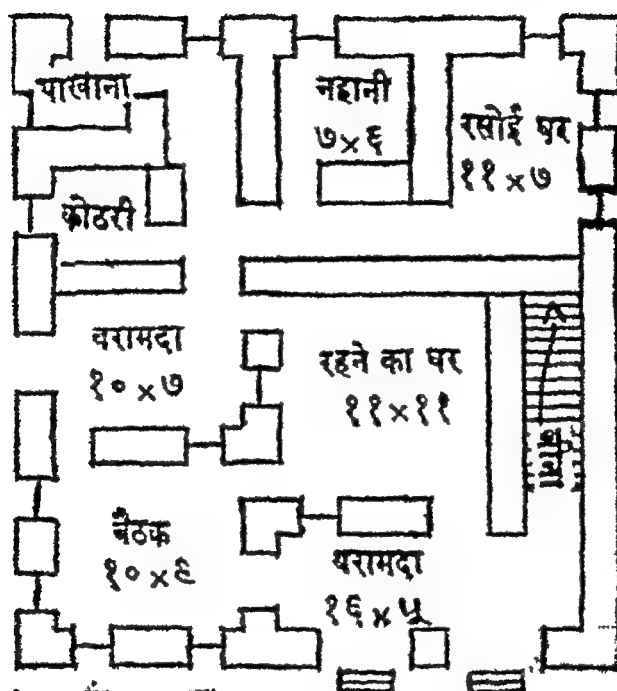 पाखाना
नहानी
७×६
रसोई घर
११×७
कोठरी
बरामदा
१०×७
रहने का घर
११×११
बैठक
१०×९
बरामदा
१६×५